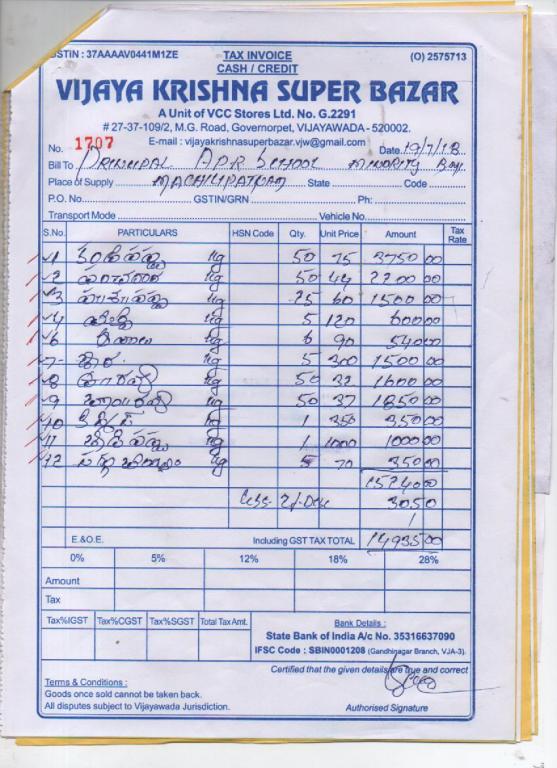 GSTIN : 37AAAAV0441M1ZE TAX INVOICE (O) 2575713
CASH / CREDIT
VIJAYA KRISHNA SUPER BAZAR
A Unit of VCC Stores Ltd. No. G.2291
# 27-37-109/2, M.G. Road, Governorpet, VIJAYAWADA - 520002.
E-mail : vijayakrishnasuperbazar.vjw@gmail.com
No. 1707 Date 19/7/18
Bill To PRINCIPAL APR SCHOOL MINORITY Boy
Place of Supply MACHILIPATNAM State Code
P.O. No. GSTIN/GRN Ph:
Transport Mode Vehicle No.
S.No. PARTICULARS HSN Code Qty. Unit Price Amount Tax Rate
1 కందిపప్పు kg 50 75 3750 00
2 kg 50 44 2200 00
3 kg 25 60 1500 00
4 kg 5 120 600 00
6 kg 6 90 540 00
7 kg 5 300 1500 00
8 kg 50 32 1600 00
9 kg 50 37 1850 00
10 kg 1 350 350 00
11 kg 1 1000 1000 00
12 kg 5 70 350 00
15240 00
Less 2% 305 0
E.&O.E. Including GST TAX TOTAL 14935 00
0% 5% 12% 18% 28%
Amount
Tax
Tax%IGST Tax%CGST Tax%SGST Total Tax Amt.
Bank Details :
State Bank of India A/c No. 35316637090
IFSC Code : SBIN0001208 (Gandhinagar Branch, VJA-3).
Certified that the given details are true and correct
Terms & Conditions :
Goods once sold cannot be taken back.
All disputes subject to Vijayawada Jurisdiction. Authorised Signature